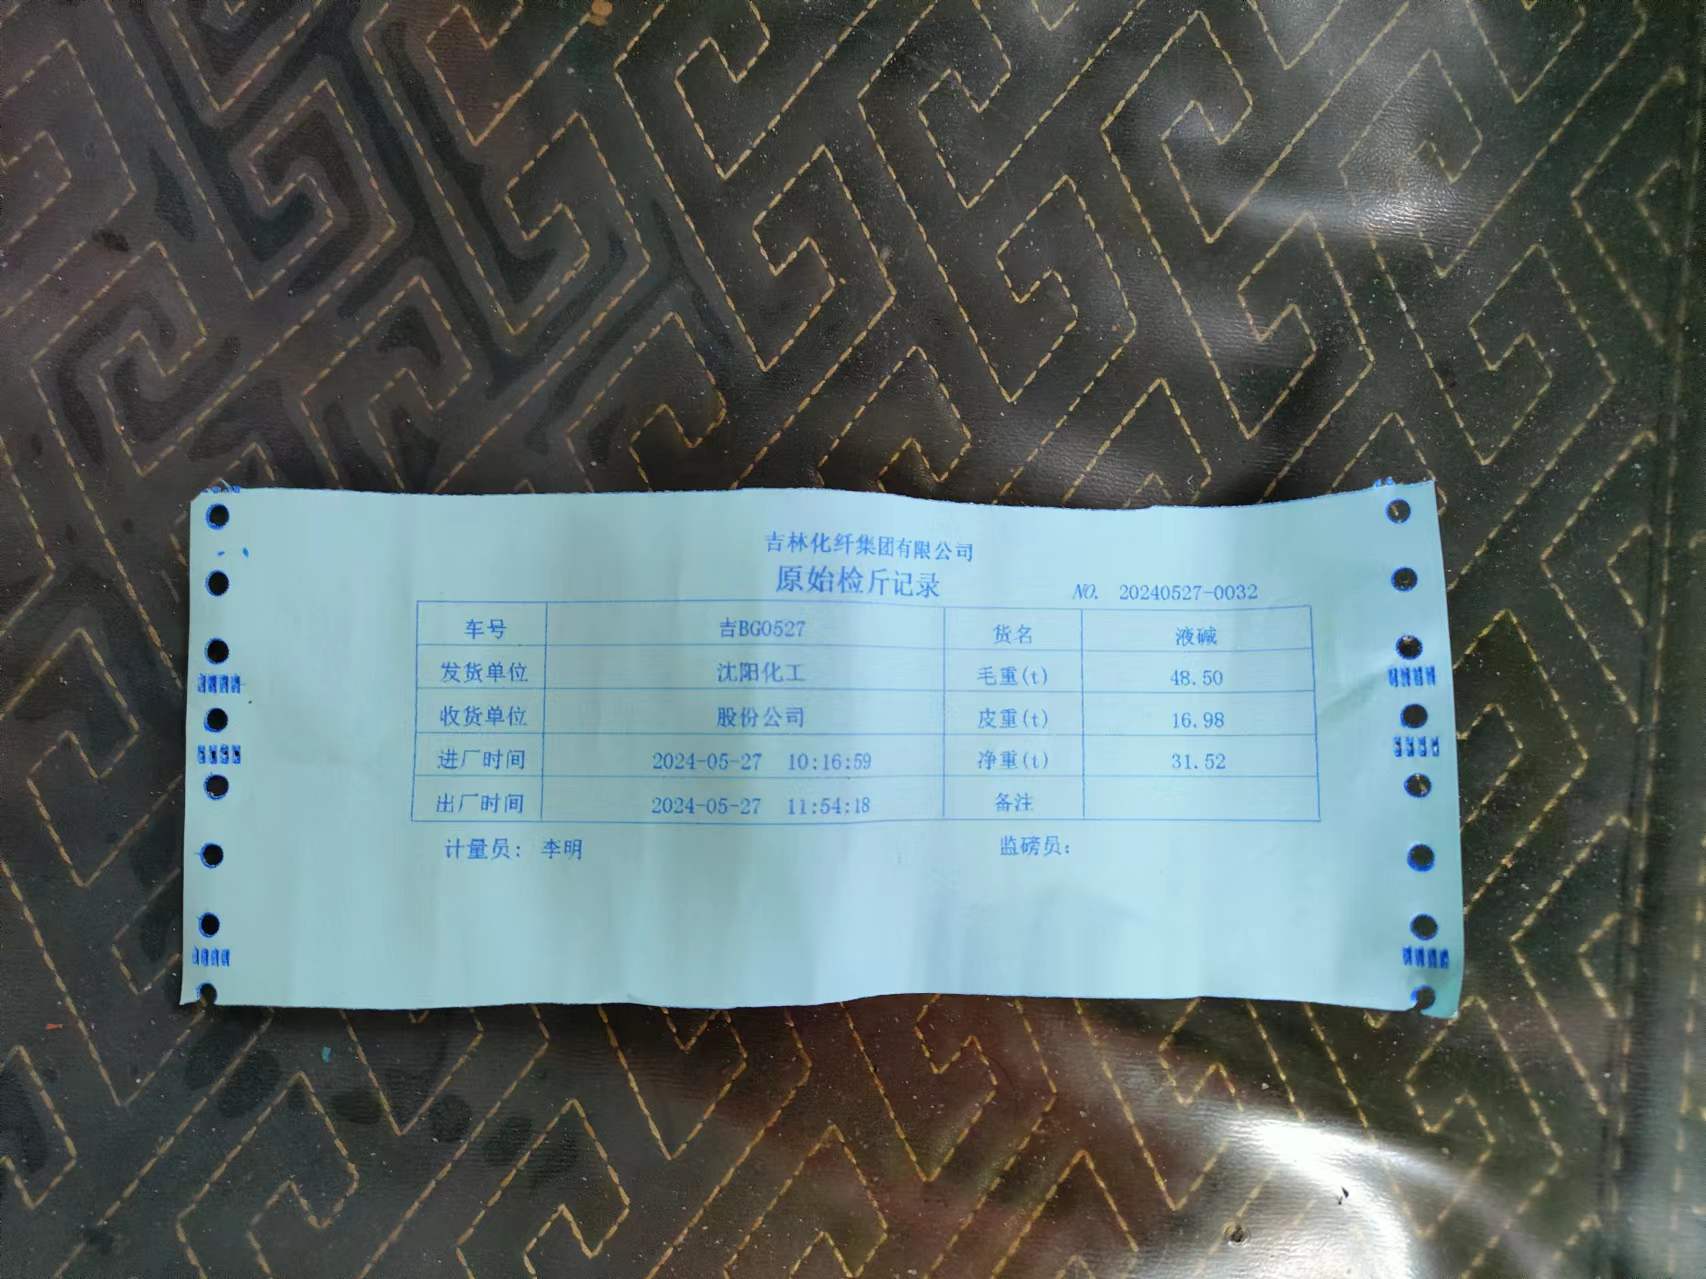 吉林化纤集团有限公司
原始检斤记录
NO. 20240527-0032
车号 吉BG0527 货名 液碱
发货单位 沈阳化工 毛重(t) 48.50
收货单位 股份公司 皮重(t) 16.98
进厂时间 2024-05-27 10:16:59 净重(t) 31.52
出厂时间 2024-05-27 11:54:18 备注
计量员: 李明 监磅员: